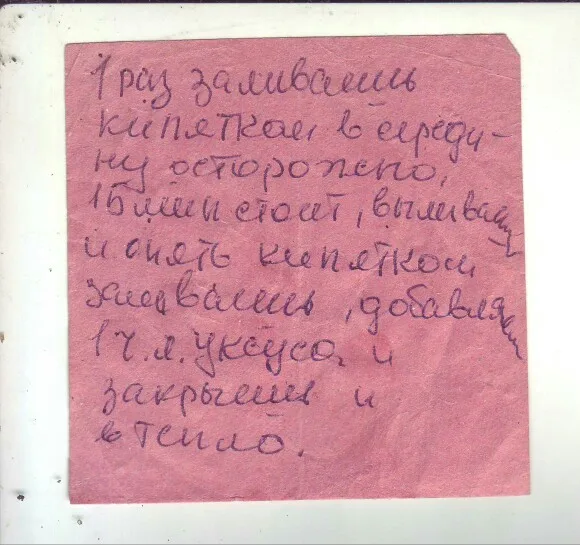 1 раз заливаешь
кипятком в середи-
ну осторожно,
15 мин стоит, выливаешь
и опять кипятком
заливаешь, добавляешь
1 ч.л. уксуса и
закрыть и
в тепло.